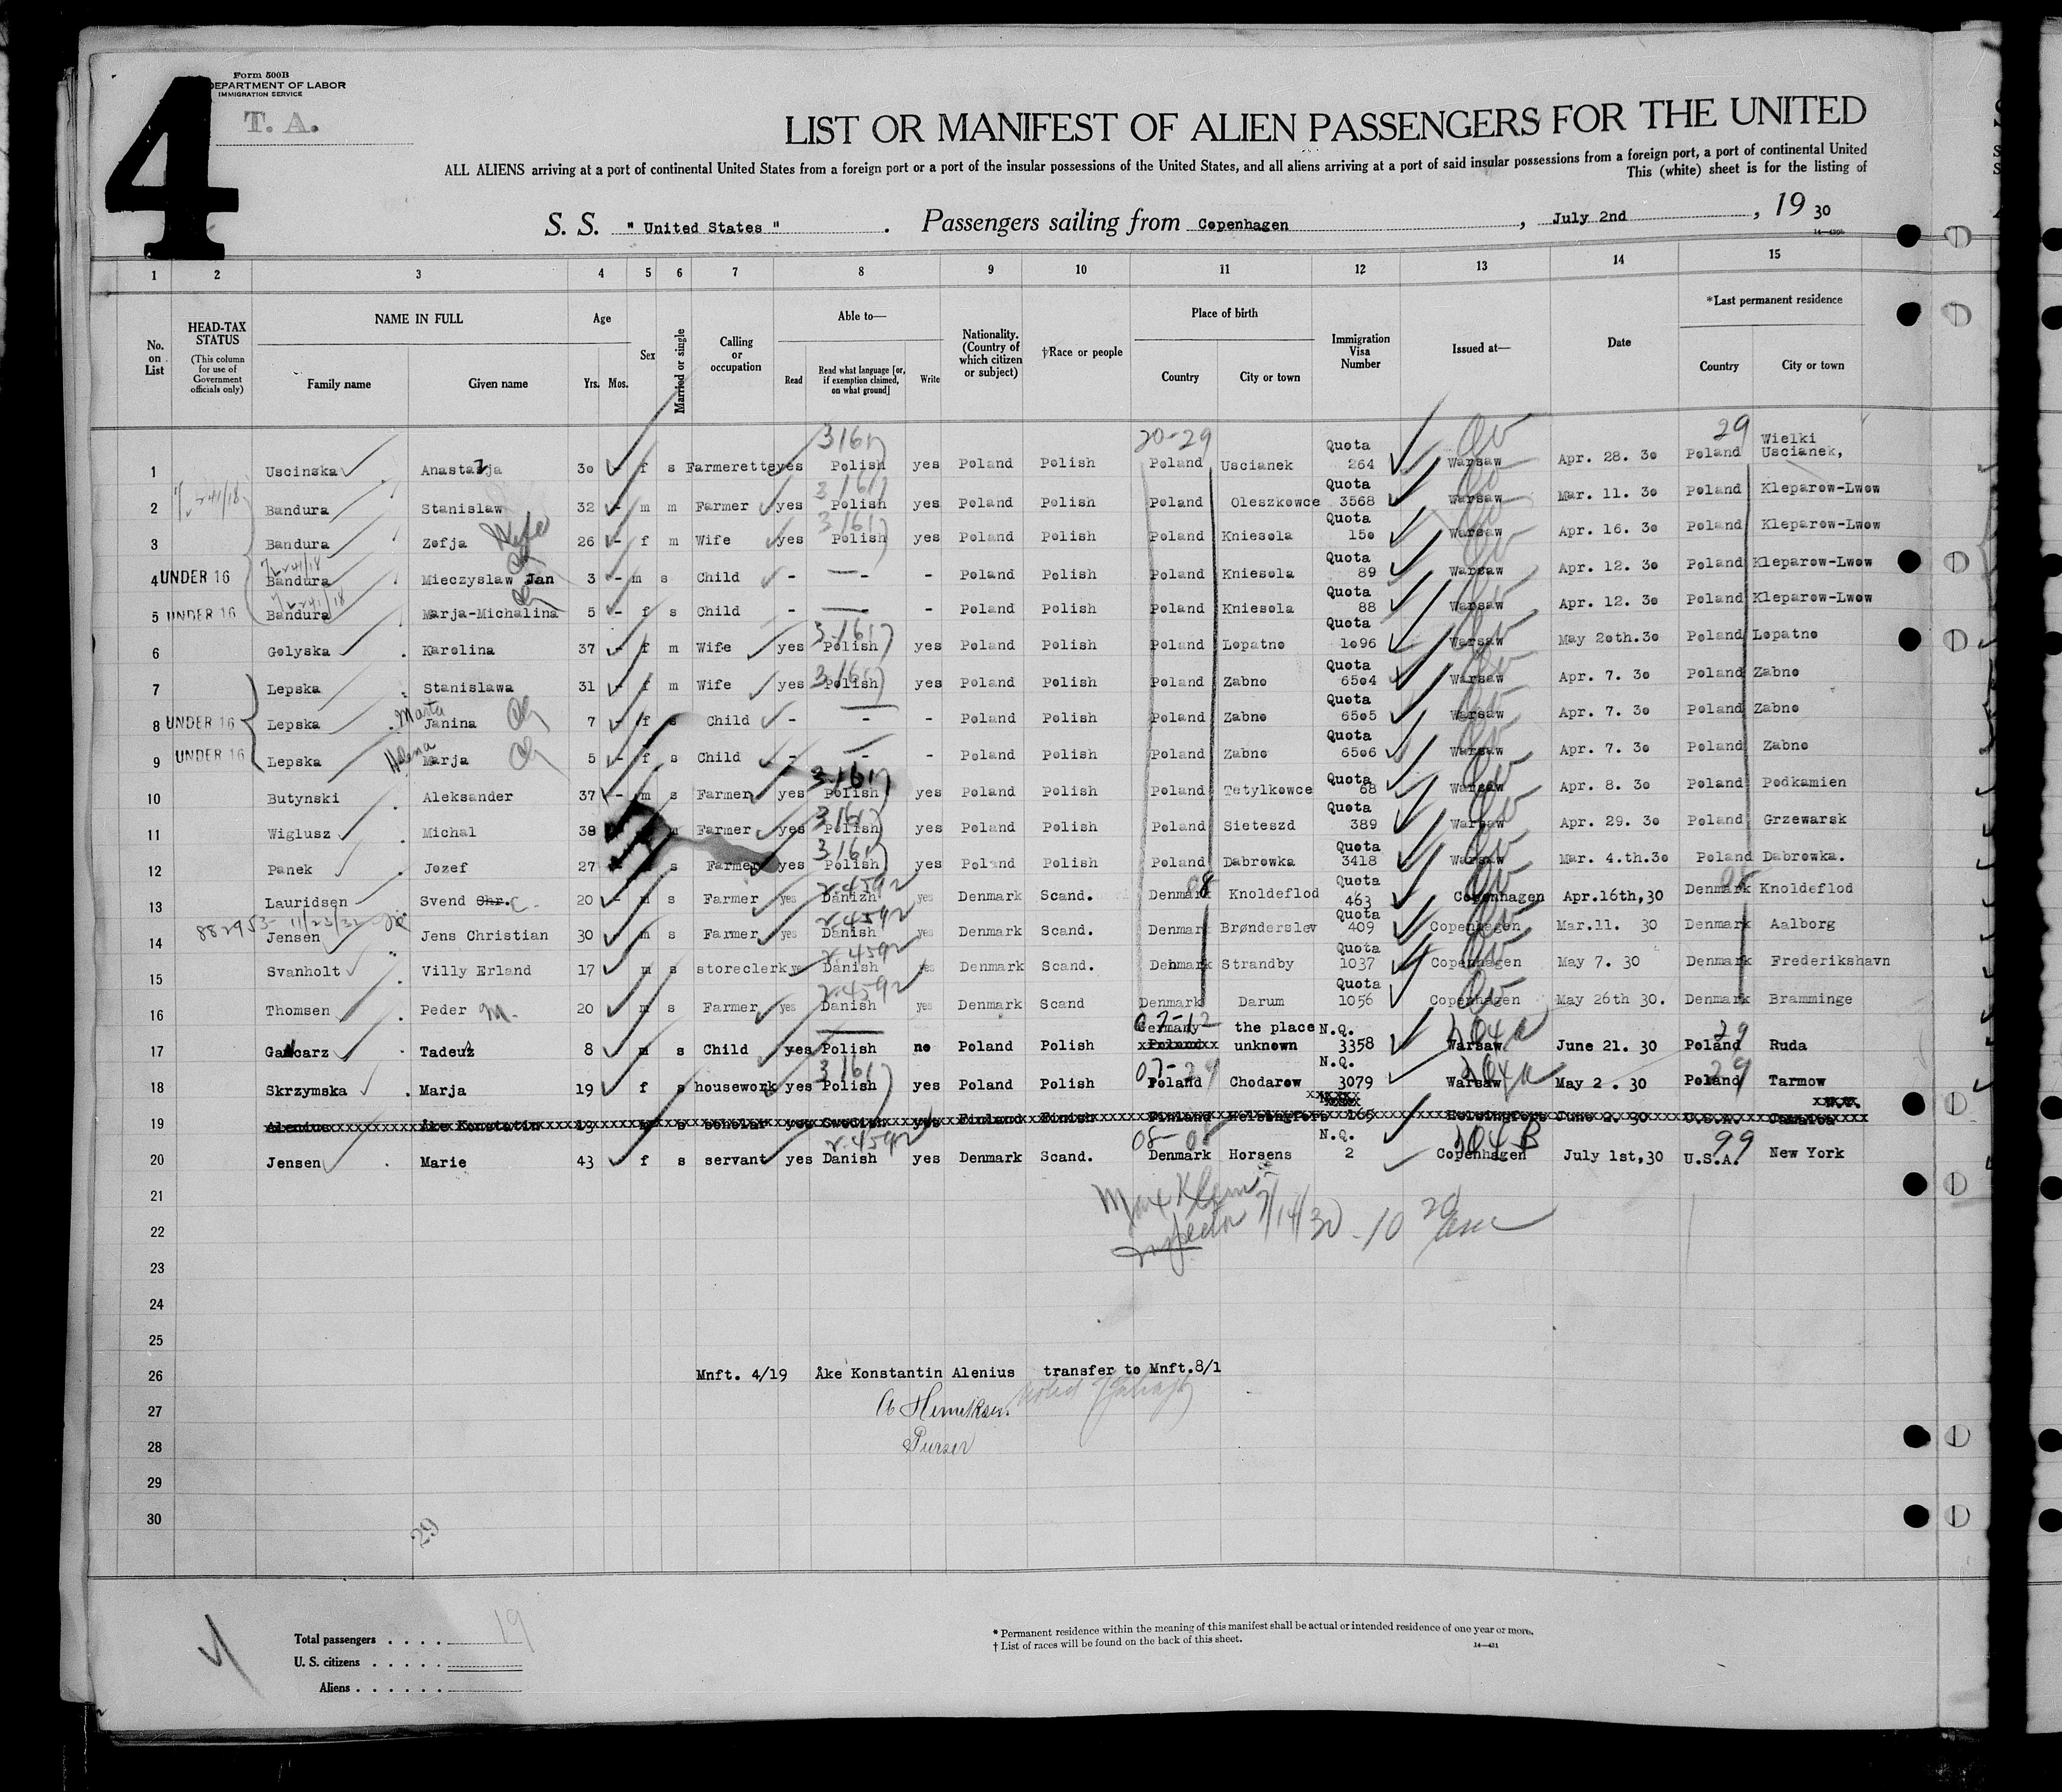 4
Form 500B
DEPARTMENT OF LABOR
IMMIGRATION SERVICE
T. A.
LIST OR MANIFEST OF ALIEN PASSENGERS FOR THE UNITED
ALL ALIENS arriving at a port of continental United States from a foreign port or a port of the insular possessions of the United States, and all aliens arriving at a port of said insular possessions from a foreign port, a port of continental United
This (white) sheet is for the listing of
S. S. " United States " . Passengers sailing from Copenhagen , July 2nd , 19 30
1 2 3 4 5 6 7 8 9 10 11 12 13 14 15
No. on List
HEAD-TAX STATUS (This column for use of Government officials only)
NAME IN FULL Family name Given name
Age Yrs. Mos.
Sex
Married or single
Calling or occupation
Able to— Read Read what language [or, if exemption claimed, on what ground] Write
Nationality. (Country of which citizen or subject)
†Race or people
Place of birth Country City or town
Immigration Visa Number
Issued at—
Date
*Last permanent residence Country City or town
3161 20-29 29
1 Uscinska Anastazja 30 - f s Farmerette yes Polish yes Poland Polish Poland Uscianek Quota 264 Warsaw Apr. 28. 30 Poland Wielki Uscianek,
2 Bandura Stanislaw 32 - m m Farmer yes Polish yes Poland Polish Poland Oleszkowce Quota 3568 Warsaw Mar. 11. 30 Poland Kleparow-Lwow
3 Bandura Zofja 26 - f m Wife yes Polish yes Poland Polish Poland Kniesola Quota 150 Warsaw Apr. 16. 30 Poland Kleparow-Lwow
4 UNDER 16 Bandura Mieczyslaw Jan 3 - m s Child - - - Poland Polish Poland Kniesola Quota 89 Warsaw Apr. 12. 30 Poland Kleparow-Lwow
5 UNDER 16 Bandura Marja-Michalina 5 - f s Child - - - Poland Polish Poland Kniesola Quota 88 Warsaw Apr. 12. 30 Poland Kleparow-Lwow
6 Golyska Karolina 37 - f m Wife yes Polish yes Poland Polish Poland Lopatno Quota 1096 Warsaw May 20th.30 Poland Lopatno
7 Lepska Stanislawa 31 - f m Wife yes Polish yes Poland Polish Poland Zabno Quota 6504 Warsaw Apr. 7. 30 Poland Zabno
8 UNDER 16 Lepska Marta Janina 7 - f s Child - - - Poland Polish Poland Zabno Quota 6505 Warsaw Apr. 7. 30 Poland Zabno
9 UNDER 16 Lepska Helena Marja 5 - f s Child - - - Poland Polish Poland Zabno Quota 6506 Warsaw Apr. 7. 30 Poland Zabno
10 Butynski Aleksander 37 - m s Farmer yes Polish yes Poland Polish Poland Tetylkowce Quota 68 Warsaw Apr. 8. 30 Poland Podkamien
11 Wiglusz Michal 38 m Farmer yes Polish yes Poland Polish Poland Sieteszd Quota 389 Warsaw Apr. 29. 30 Poland Grzewarsk
12 Panek Jozef 27 s Farmer yes Polish yes Poland Polish Poland Dabrowka Quota 3418 Warsaw Mar. 4.th.30 Poland Dabrowka.
13 Lauridsen Svend Chr. C. 20 - m s Farmer yes Danizh yes Denmark Scand. Denmark Knoldeflod Quota 463 Copenhagen Apr.16th,30 Denmark Knoldeflod
882953- 11/23/32
14 Jensen Jens Christian 30 m s Farmer yes Danish yes Denmark Scand. Denmark Brønderslev Quota 409 Copenhagen Mar.11. 30 Denmark Aalborg
15 Svanholt Villy Erland 17 m s storeclerk yes Danish yes Denmark Scand. Denmark Strandby Quota 1037 Copenhagen May 7. 30 Denmark Frederikshavn
16 Thomsen Peder M. 20 m s Farmer yes Danish yes Denmark Scand Denmark Darum Quota 1056 Copenhagen May 26th 30. Denmark Bramminge
17 Gancarz Tadeuz 8 m s Child yes Polish no Poland Polish Germany the place unknown N.Q. 3358 Warsaw June 21. 30 Poland Ruda
18 Skrzymska Marja 19 f s housework yes Polish yes Poland Polish Poland Chodarow N.Q. 3079 Warsaw May 2 . 30 Poland Tarmow
19 Alenius Åke Konstatin 13 m s scholar yes Swedish yes Finland Finish Finland Helsingfors 165 Helsingfors June 2. 30 U.S.A. Jamaica
20 Jensen Marie 43 f s servant yes Danish yes Denmark Scand. Denmark Horsens N.Q. 2 Copenhagen July 1st,30 U.S.A. New York
21
22 Inspector 7/14/30 - 10
23
24
25
26 Mnft. 4/19 Åke Konstantin Alenius transfer to Mnft.8/1
27 Henriksen.
28 Purser
29
30
29
Total passengers . . . . 19
U. S. citizens . . . . .
Aliens . . . . . .
* Permanent residence within the meaning of this manifest shall be actual or intended residence of one year or more.
† List of races will be found on the back of this sheet.
14—431